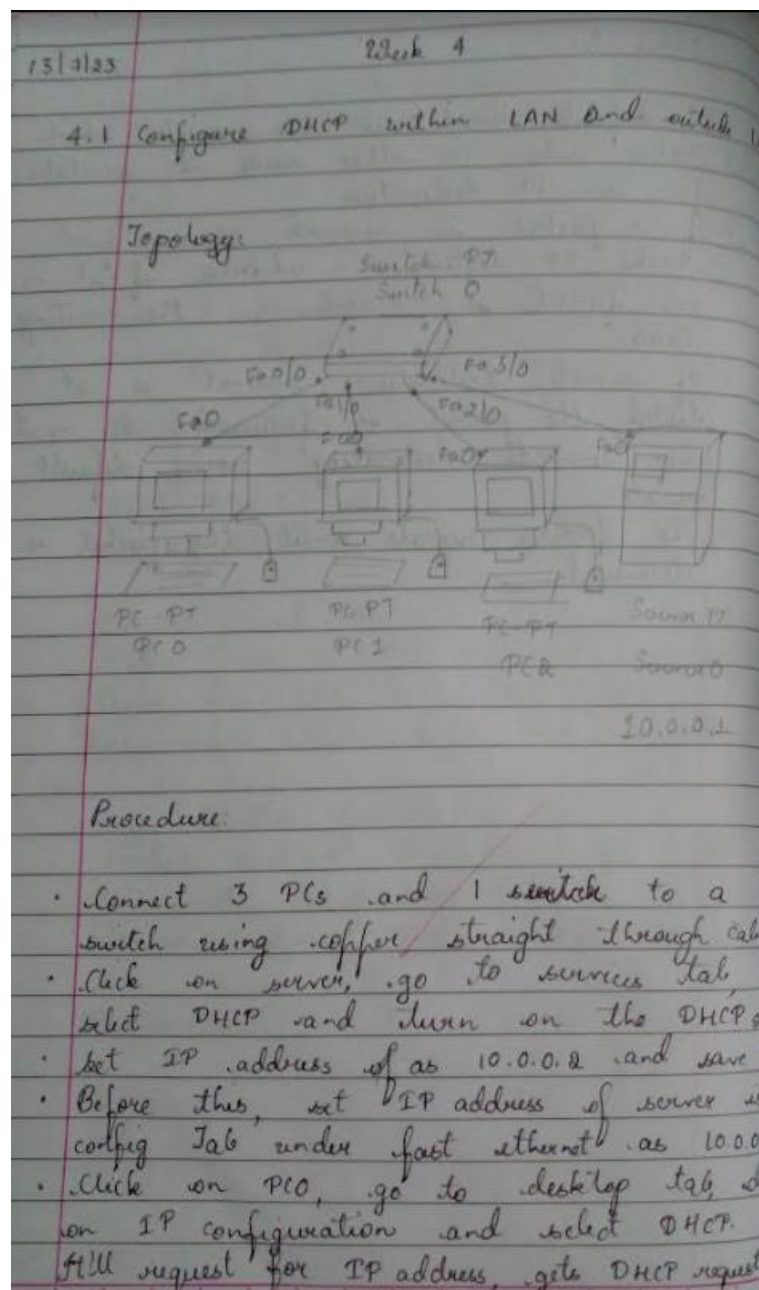 13/7/23
Week 4
4.1 Configure DHCP within LAN and outside
Topology:
Switch-PT
Switch 0
Fa0/0
Fa3/0
Fa1/0
Fa2/0
Fa0
Fa0
Fa0
Fa0
PC-PT
PC-PT
PC-PT
PC0
PC1
PC2
10.0.0.1
Procedure:
. Connect 3 PCs and 1 switch to a
switch using copper straight through
. Click on server, go to services tab,
select DHCP and turn on the DHCP
. set IP address of as 10.0.0.2 and save
. Before this, set IP address of server
config Tab under fast ethernet as
. Click on PC0, go to desktop tab,
on IP configuration and select DHCP.
request for IP address, gets DHCP request